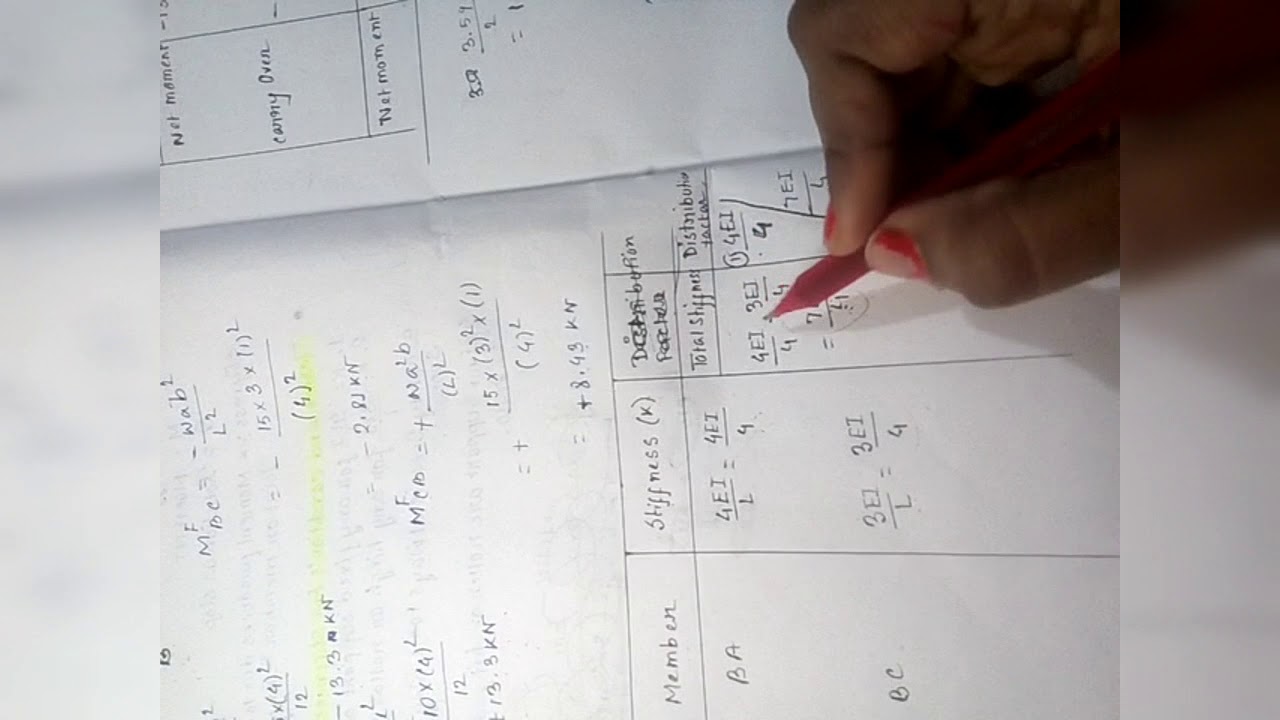 Net moment
Carry Over
Net moment
3.59
2
= 1
M^F BC = - wab² / L²
= - 15 x 3 x (1)² / (4)²
= - 2.81 KN
x(4)²
12
- 13.3 KN
M^F CD = + wa²b / (L)²
= + 15 x (3)² x (1) / (4)²
= + 8.43 KN
10 x (4)²
12
+ 13.3 KN
Member | Stiffness (K) | Total Stiffness | Distribution factor
BA | 4EI / L = 4EI / 4 | 4EI / 4 3EI / 4 | ① 4EI / 4 / 7EI / 4
BC | 3EI / L = 3EI / 4